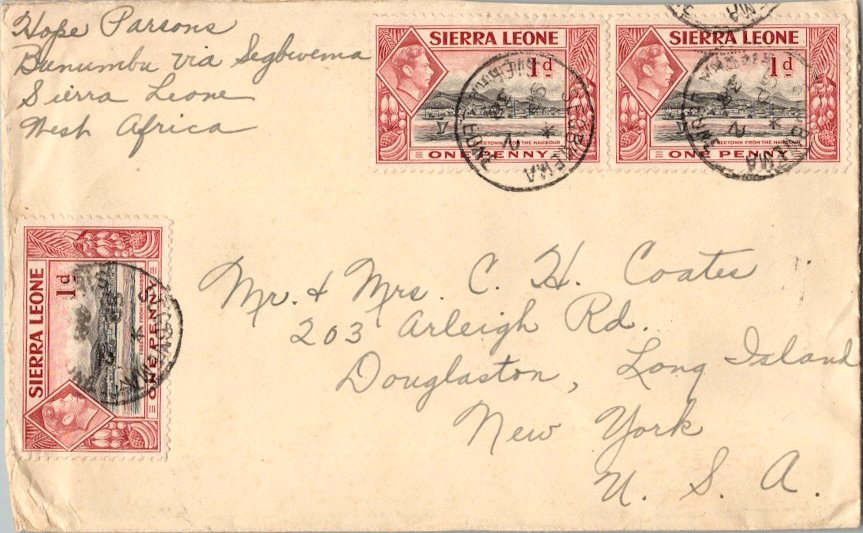 Hope Parsons
Bunumbu via Segbwema
Sierra Leone
West Africa
SIERRA LEONE
1d
FREETOWN FROM THE HARBOUR
ONE PENNY
SIERRA LEONE
1d
FREETOWN FROM THE HARBOUR
ONE PENNY
SIERRA LEONE
1d
ONE PENNY
SEGBWEMA
Mr. & Mrs. C. H. Coates
203 Arleigh Rd.
Douglaston, Long Island
New York
U. S. A.